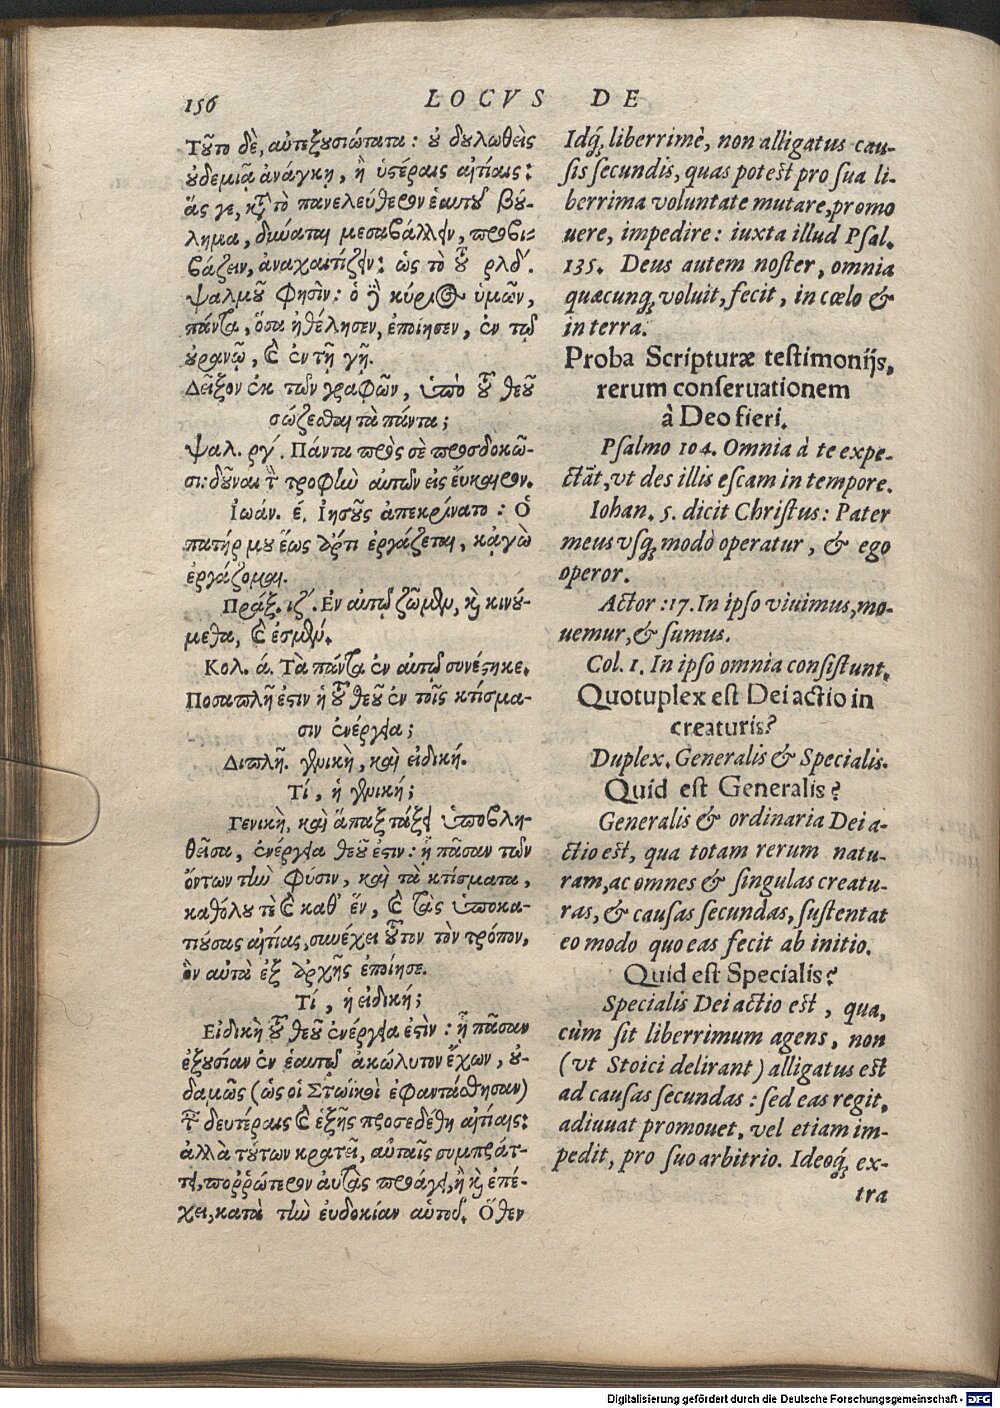 156 LOCVS DE
Τοῦτο δὲ, αὐτεξουσιώτατα: οὐ δουλωθεὶς
οὐδεμιᾷ ἀνάγκῃ, ἢ ὑστέραις αἰτίαις:
ἅς γε, κατὰ τὸ πανελεύθερον ἑαυτοῦ βού-
λημα, δύναται μεταβάλλειν, προβι-
βάζειν, ἀναχαιτίζειν: ὡς τὸ τοῦ ρλδ΄.
ψαλμοῦ φησὶν: ὁ δὲ κύριος ὑμῶν,
πάντα, ὅσα ἠθέλησεν, ἐποίησεν, ἐν τῷ
οὐρανῷ, καὶ ἐν τῇ γῇ.
Δεῖξον ἐκ τῶν γραφῶν, ὑπὸ τοῦ θεοῦ
σώζεσθαι τὰ πάντα;
ψαλ. ργ΄. Πάντα πρὸς σὲ προσδοκῶ-
σι: δοῦναι τὴν τροφὴν αὐτῶν εἰς εὔκαιρον.
Ἰωάν. έ. Ἰησοῦς ἀπεκρίνατο: Ὁ
πατήρ μου ἕως ἄρτι ἐργάζεται, κᾀγὼ
ἐργάζομαι.
Πράξ. ιζ΄. Ἐν αὐτῷ ζῶμεν, καὶ κινού-
μεθα, καὶ ἐσμέν.
Κολ. ά. Τὰ πάντα ἐν αὐτῷ συνέστηκε.
Ποσαπλῆ ἐστιν ἡ τοῦ θεοῦ ἐν τοῖς κτίσμα-
σιν ἐνέργεια;
Διπλῆ. γενικὴ, καὶ εἰδική.
Τί, ἡ γενική;
Γενικὴ, καὶ ἅπαξ τάξει ὑποβλη-
θεῖσα, ἐνέργεια θεοῦ ἐστιν: ᾗ πᾶσαν τῶν
ὄντων τὴν φύσιν, καὶ τὰ κτίσματα,
καθόλου τὲ καὶ καθ' ἓν, καὶ τὰς ὑποκα-
τιούσας αἰτίας, συνέχει τοῦτον τὸν τρόπον,
ὃν αὐτὰ ἐξ ἀρχῆς ἐποίησε.
Τί, ἡ εἰδική;
Εἰδικὴ τοῦ θεοῦ ἐνέργεια ἐστὶν: ᾗ πᾶσαν
ἐξουσίαν ἐν ἑαυτῷ ἀκώλυτον ἔχων, οὐ-
δαμῶς (ὡς οἱ Στωϊκοὶ ἐφαντάσθησαν)
ταῖς δευτέραις καὶ ἑξῆς προσεδέθη αἰτίαις:
ἀλλὰ τούτων κρατεῖ, αὐταῖς συμπράτ-
τει, πορρώτερον αὐτὰς προάγει, ἢ καὶ ἐπέ-
χει, κατὰ τὴν εὐδοκίαν αὐτοῦ. Ὅθεν
Idq́; liberrimè, non alligatus cau-
sis secundis, quas potest pro sua li-
berrima voluntate mutare, promo
uere, impedire: iuxta illud Psal.
135. Deus autem noster, omnia
quæcunq; voluit, fecit, in cœlo &
in terra.
Proba Scripturæ testimonijs,
rerum conseruationem
à Deo fieri.
Psalmo 104. Omnia à te expe-
ctãt, vt des illis escam in tempore.
Iohan. 5. dicit Christus: Pater
meus vsq; modò operatur, & ego
operor.
Actor :17. In ipso viuimus, mo-
uemur, & sumus.
Col. 1. In ipso omnia consistunt.
Quotuplex est Dei actio in
creaturis?
Duplex. Generalis & Specialis.
Quid est Generalis?
Generalis & ordinaria Dei a-
ctio est, qua totam rerum natu-
ram, ac omnes & singulas creatu-
ras, & causas secundas, sustentat
eo modo quo eas fecit ab initio.
Quid est Specialis?
Specialis Dei actio est, qua,
cùm sit liberrimum agens, non
(vt Stoici delirant) alligatus est
ad causas secundas: sed eas regit,
adiuuat promouet, vel etiam im-
pedit, pro suo arbitrio. Ideoq́; ex-
tra
Digitalisierung gefördert durch die Deutsche Forschungsgemeinschaft - DFG